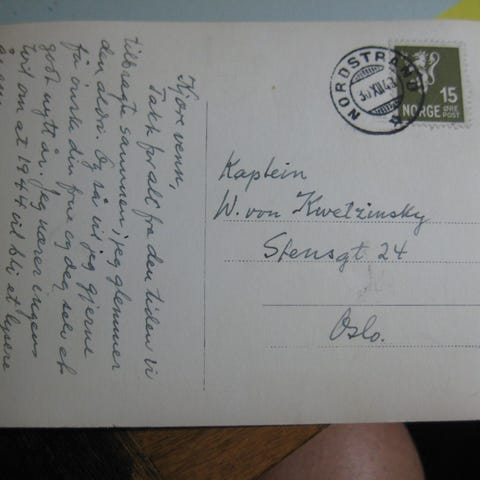 Kjære venn,
Takk for alt fra den tiden vi
tilbragte sammen, jeg glemmer
den aldri. Og så vil jeg gjerne
få ønske din frue og deg selv et
godt nytt år. Jeg nærer ingen
tvil om at 1944 vil bli et lysere
NORDSTRAND
30 XII 43
NORGE 15 ØRE
POST
Kaptein
W. von Kwetzinsky
Stensgt 24
Oslo.